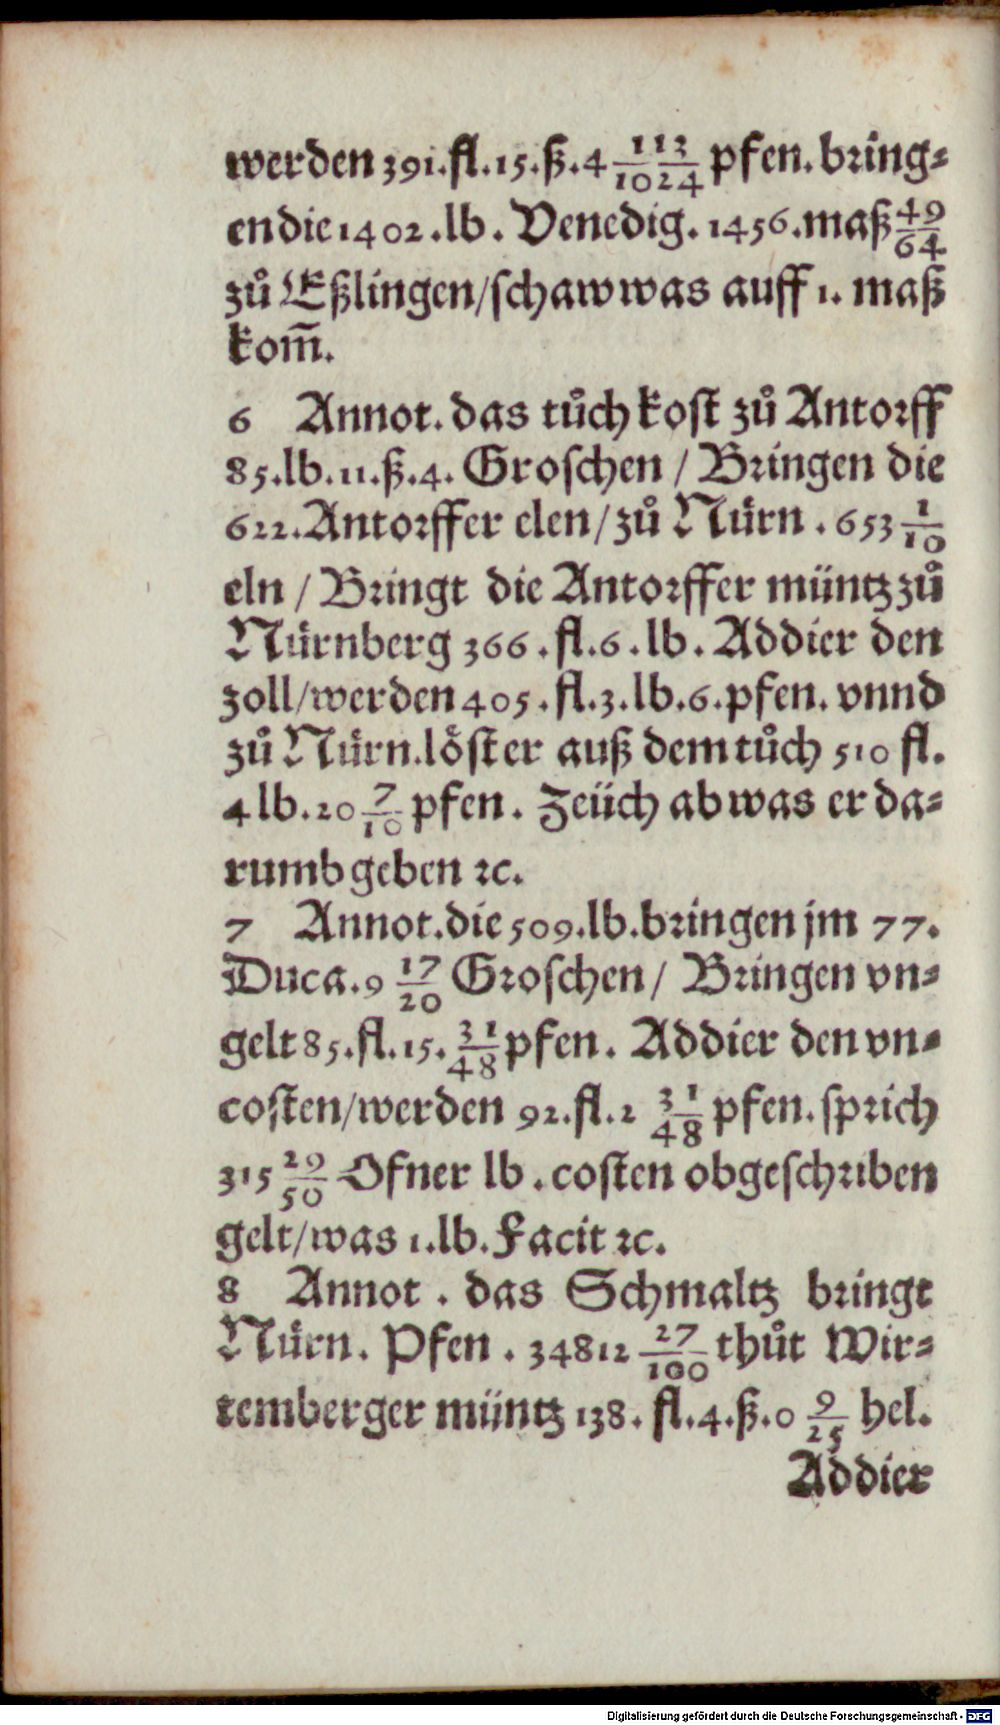 werden 391.fl.15.ß.4 113/1024 pfen. bring⸗
en die 1402.lb. Venedig. 1456.maß 49/64
zů Eßlingen/schaw was auff 1. maß
kom̄.
6 Annot. das tůch kost zů Antorff
85.lb.11.ß.4. Groschen / Bringen die
622.Antorffer elen/zů Nürn. 653 1/10
eln / Bringt die Antorffer müntz zů
Nürnberg 366.fl.6.lb. Addier den
zoll/werden 405.fl.3.lb.6.pfen. vnnd
zů Nürn.löst er auß dem tůch 510 fl.
4 lb.20 7/10 pfen. Zeüch ab was er da⸗
rumb geben ꝛc.
7 Annot.die 509.lb.bringen jm 77.
Duca.9 17/20 Groschen/ Bringen vn⸗
gelt 85.fl.15. 31/48 pfen. Addier den vn⸗
costen/werden 92.fl.2 31/48 pfen.sprich
315 29/50 Ofner lb.costen obgeschriben
gelt/was 1.lb.Facit ꝛc.
8 Annot. das Schmaltz bringt
Nürn. Pfen. 34812 27/100 thůt Wir⸗
temberger müntz 138.fl.4.ß.0 9/25 hel.
Addier
Digitalisierung gefördert durch die Deutsche Forschungsgemeinschaft - DFG